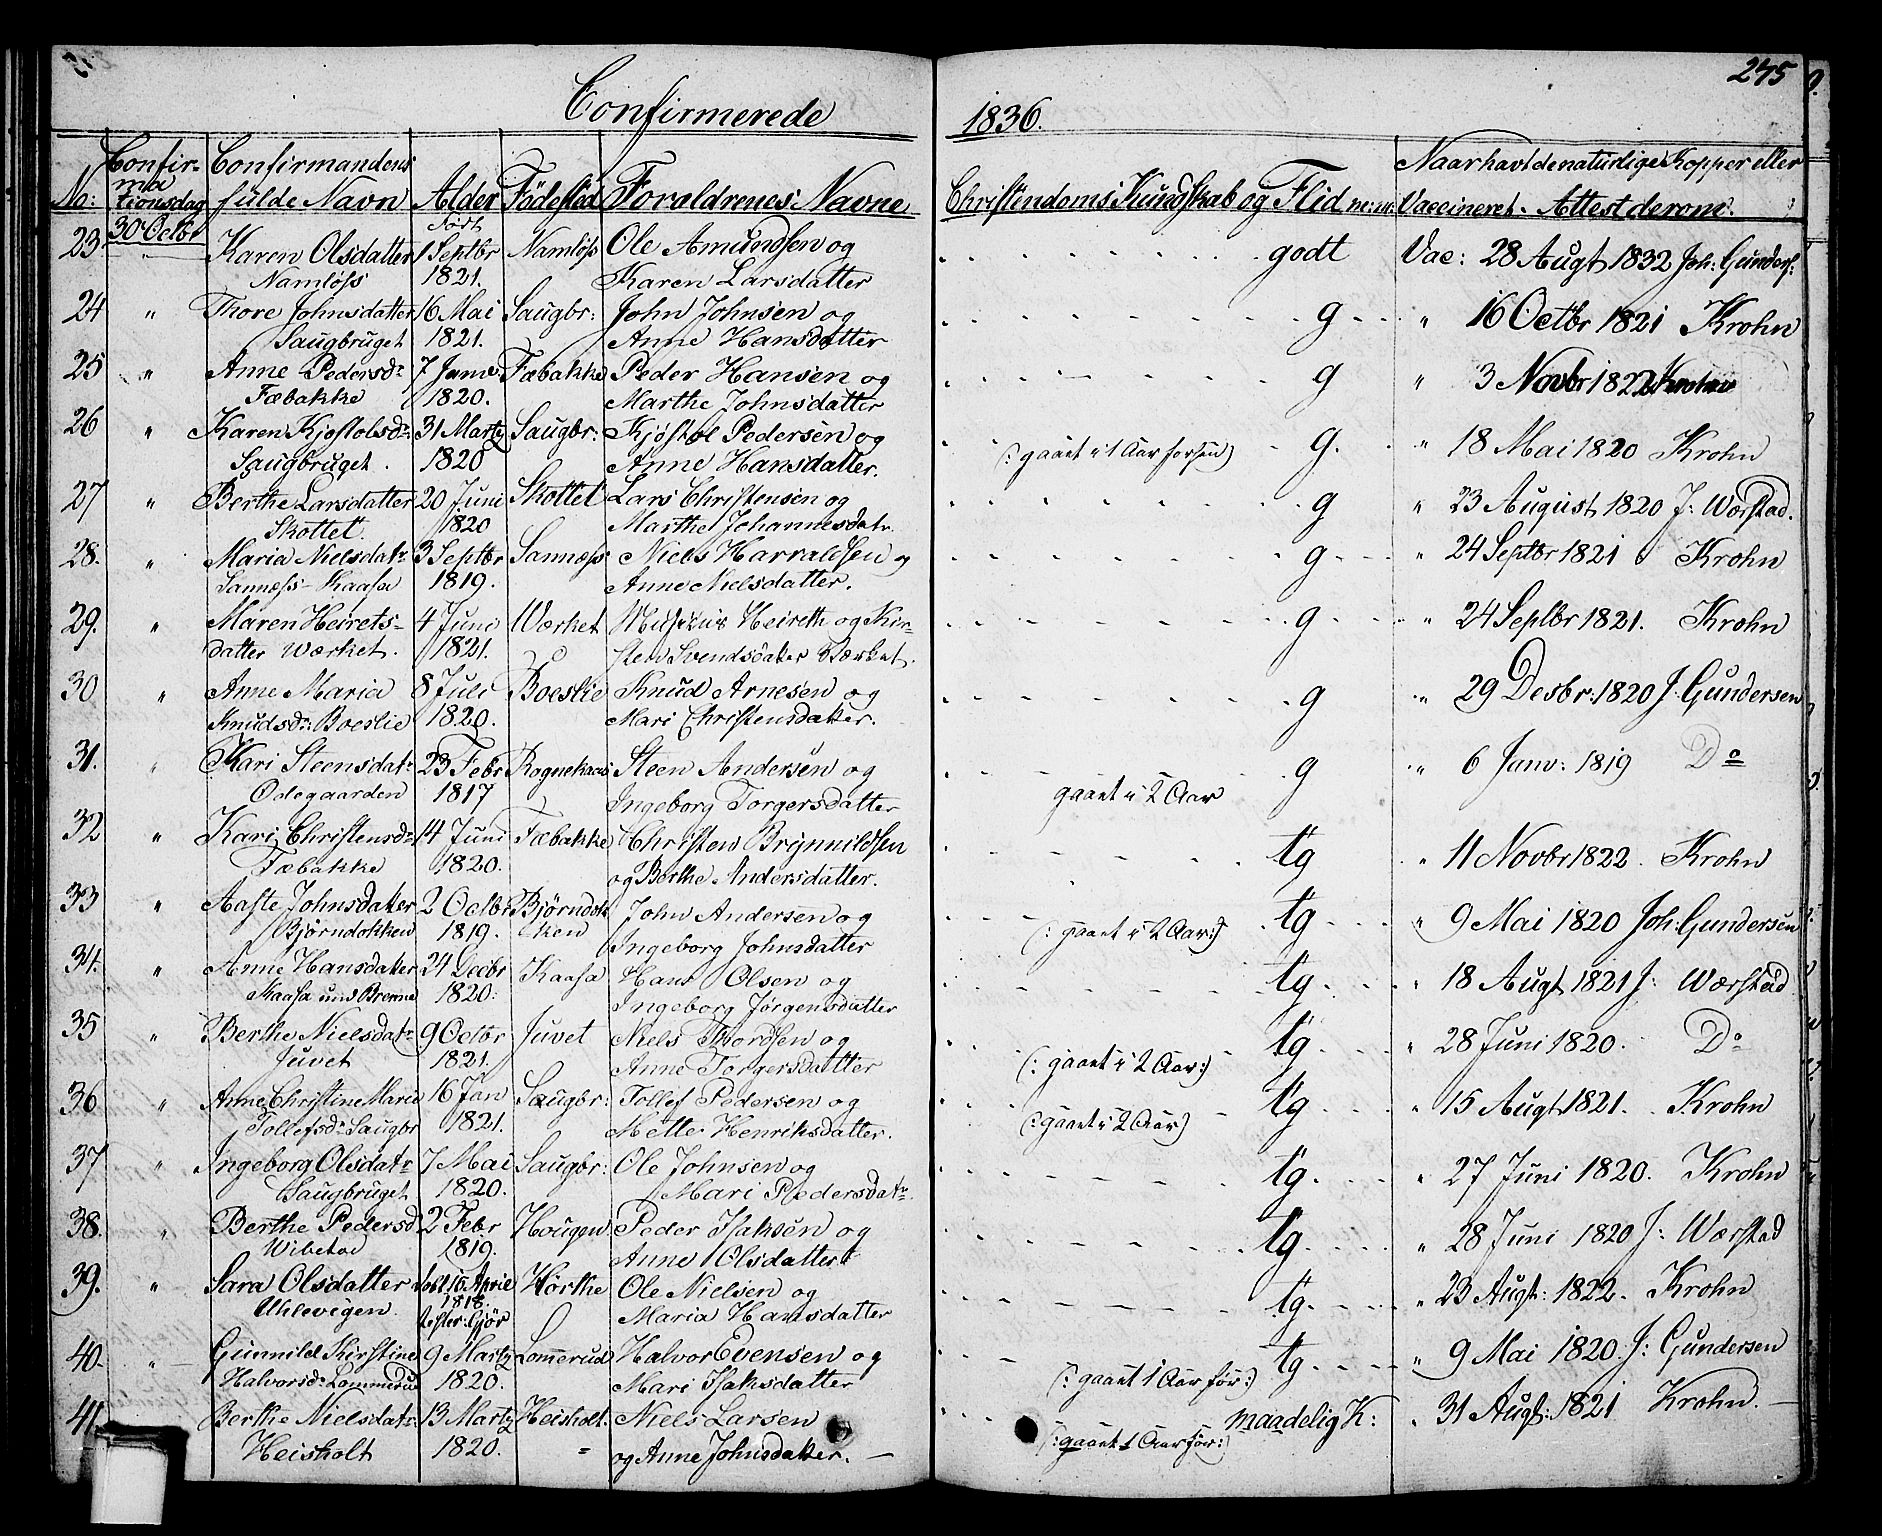 Confirmerede 1836. 245
No: Confirmationsdag Confirmandens fulde Navn Alder Födested Foraldrenes Navne Christendoms Kundskab og Flid m:m: Naar havt de naturlige Kopper eller Vaccineret. Attest derom.
23. 30 Octbr Karen Olsdatter født 1 Septbr Namløss Ole Amundsen og godt Vac: 28 Augt 1832 Joh: Gunders:
Namløss 1821. Karen Larsdatter
24 " Thore Johnsdatter 16 Mai Saugbr: John Johnsen og g " 16 Octbr 1821 Krohn
Saugbruget 1821. Anne Hansdatter
25 " Anne Pedersdr 7 Janv: Fæbakke Peder Hansen og g " 3 Novbr 1822 Krohn
Fæbakke 1820. Marthe Johnsdatter
26 " Karen Kjøstolsdr 31 Marty Saugbr: Kjøstol Pedersen og (: gaaet i 1 Aar forsen) g. " 18 Mai 1820 Krohn
Saugbruget. 1820 Anne Hansdatter.
27 " Berthe Larsdatter 20 Juni Skottet Lars Christensen og g " 23 August 1820 J: Wærstad.
Skottet. 1820 Marthe Johannesdatr.
28. " Maria Nielsdatr 3 Septbr Sannæss Niels Harraldsen og g " 24 Septbr 1821 Krohn
Sannæss-Kaasa 1819. Anne Nielsdatter.
29. " Maren Heirets- 4 Juni Værket Heireth og Kir- g " 24 Septbr 1821. Krohn
datter Værket. 1821. sten Svendsdatter Værket.
30 " Anne Maria 8 Juli Boeslie Knud Arnesen og g " 29 Desbr: 1820 J: Gundersen
Knudsdr: Boeslie 1820. Mari Christensdatter.
31. " Kari Steensdatr 23 Febr Rognekaas Steen Andersen og gaaet i 2 Aar g " 6 Janv: 1819 Do
Odegaarden 1817 Ingeborg Torgersdatter
32 " Kari Christensdr 14 Juni Fæbakke Christen Brynnildsen tg " 11 Novbr 1822. Krohn
Fæbakke 1820. og Berthe Andersdatter.
33 " Aaste Johnsdatter 2 Octbr Bjørndok- John Andersen og (: gaaet i 2 Aar:) tg " 9 Mai 1820 Joh: Gundersen
Bjørndokken 1819. ken Ingeborg Johnsdatter
34. " Anne Hansdatter 24 Decbr Kaasa Hans Olsen og tg " 18 Augt 1821 J: Wærstad
Kaasa und Brenna 1820: Ingeborg Jørgensdatter
35 " Berthe Nielsdatr 9 Octbr Juvet Niels Thordsen og (: gaaet i 2 Aar:) tg " 28 Juni 1820. Do
Juvet 1821. Anne Torgersdatter
36 " Anne Christine Marie 16 Jan Saugbr: Tollef Pedersen og (: gaaet i 2 Aar) tg " 15 Augt 1821. Krohn
Tollefsdr Saugbr 1821. Mette Henriksdatter.
37 " Ingeborg Olsdatr 7 Mai Saugbr: Ole Johnsen og tg " 27 Juni 1820. Krohn
Saugbruget 1820. Mari Pedersdatr.
38. " Berthe Pedersd 2 Febr Hougen Peder Isaksen og tg " 28 Juni 1820 J: Wærstad
Wibetod 1819. Anne Olsdatter
39. " Sara Olsdatter døbt 15 April Hørthe Ole Nielsen og tg " 23 Augt: 1822. Krohn
Uhlevigen. 1818. Maria Hansdatter
40. " Gunnild Kirstine 9 Marty Lommerud Halvor Evensen og (: gaaet 1 Aar før:) tg " 9 Mai 1820. J: Gundersen
Halvorsdr Lommerud 1820. Mari Isaksdatter
41. Berthe Nielsdatr: 13 Marty Heisholt. Niels Larsen (: gaaet 1 Aar før:) maadelig K: " 31 Augt: 1821 Krohn.
Heisholt 1820. " og Anne Johnsdatter.